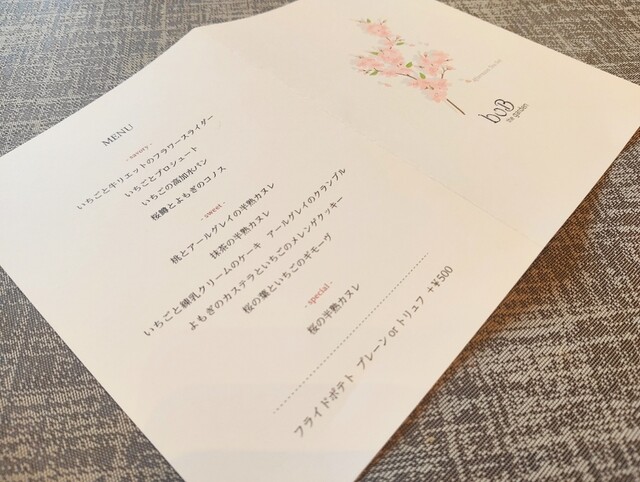 MENU
- savory -
いちごと牛リエットのフラワースライダー
いちごとプロシュート
いちごの高加水パン
桜鱒とよもぎのコノス
- sweet -
桃とアールグレイの半熟カヌレ
抹茶の半熟カヌレ
いちごと練乳クリームのケーキ　アールグレイのクランブル
よもぎのカステラといちごのメレンゲクッキー
桜の葉といちごのギモーヴ
- special -
桜の半熟カヌレ
フライドポテト プレーン or トリュフ +¥500
boB
the garden